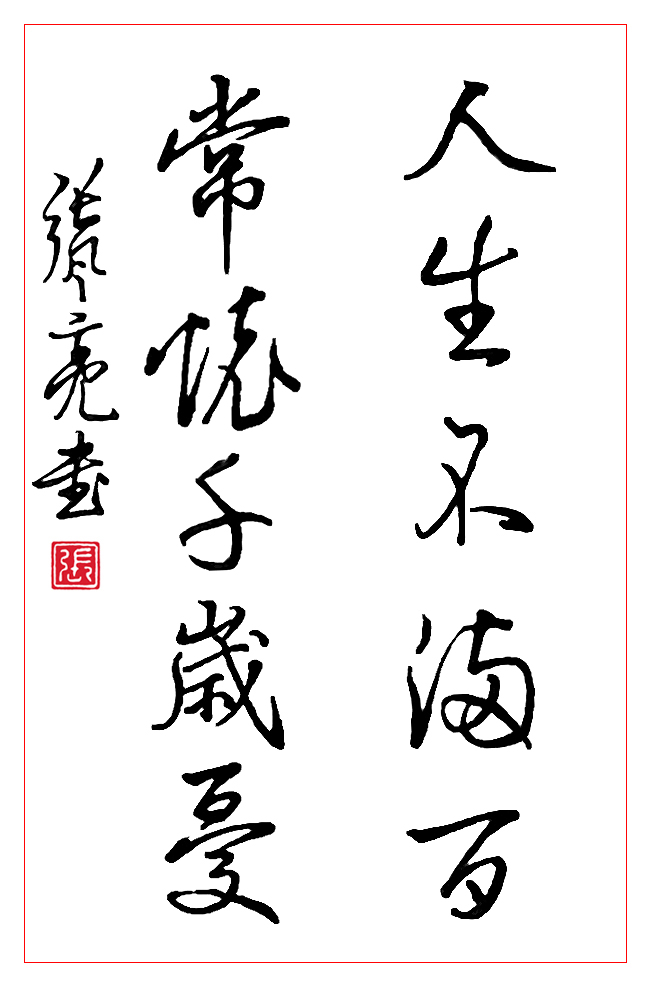 人生不满百
常懷千歳憂
張亮書
張